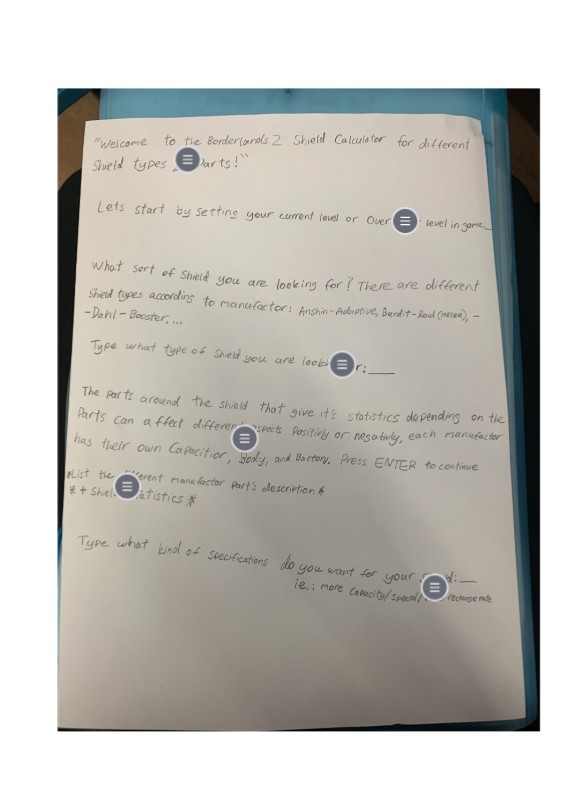 "Welcome to the Borderlands 2 Shield Calculator for different
Shield types Parts!"
Lets start by setting your current level or Over level in game:_
What sort of Shield you are looking for? There are different
Shield types according to manufactor: Anshin-Adaptive, Bandit-Roid (melee), -
-Dahl-Booster, ...
Type what type of Shield you are looki r:___
The parts around the shield that give it's statistics depending on the
Parts can affect different aspects Positivly or negativly, each manufactor
has their own Capacitior, Body, and Battery. Press ENTER to continue
*List the different manufactor part's description*
*+ Shiel tatistics *
Type what kind of Specifications do you want for your d:__
ie.: more Capacity/Special/ recharge rate